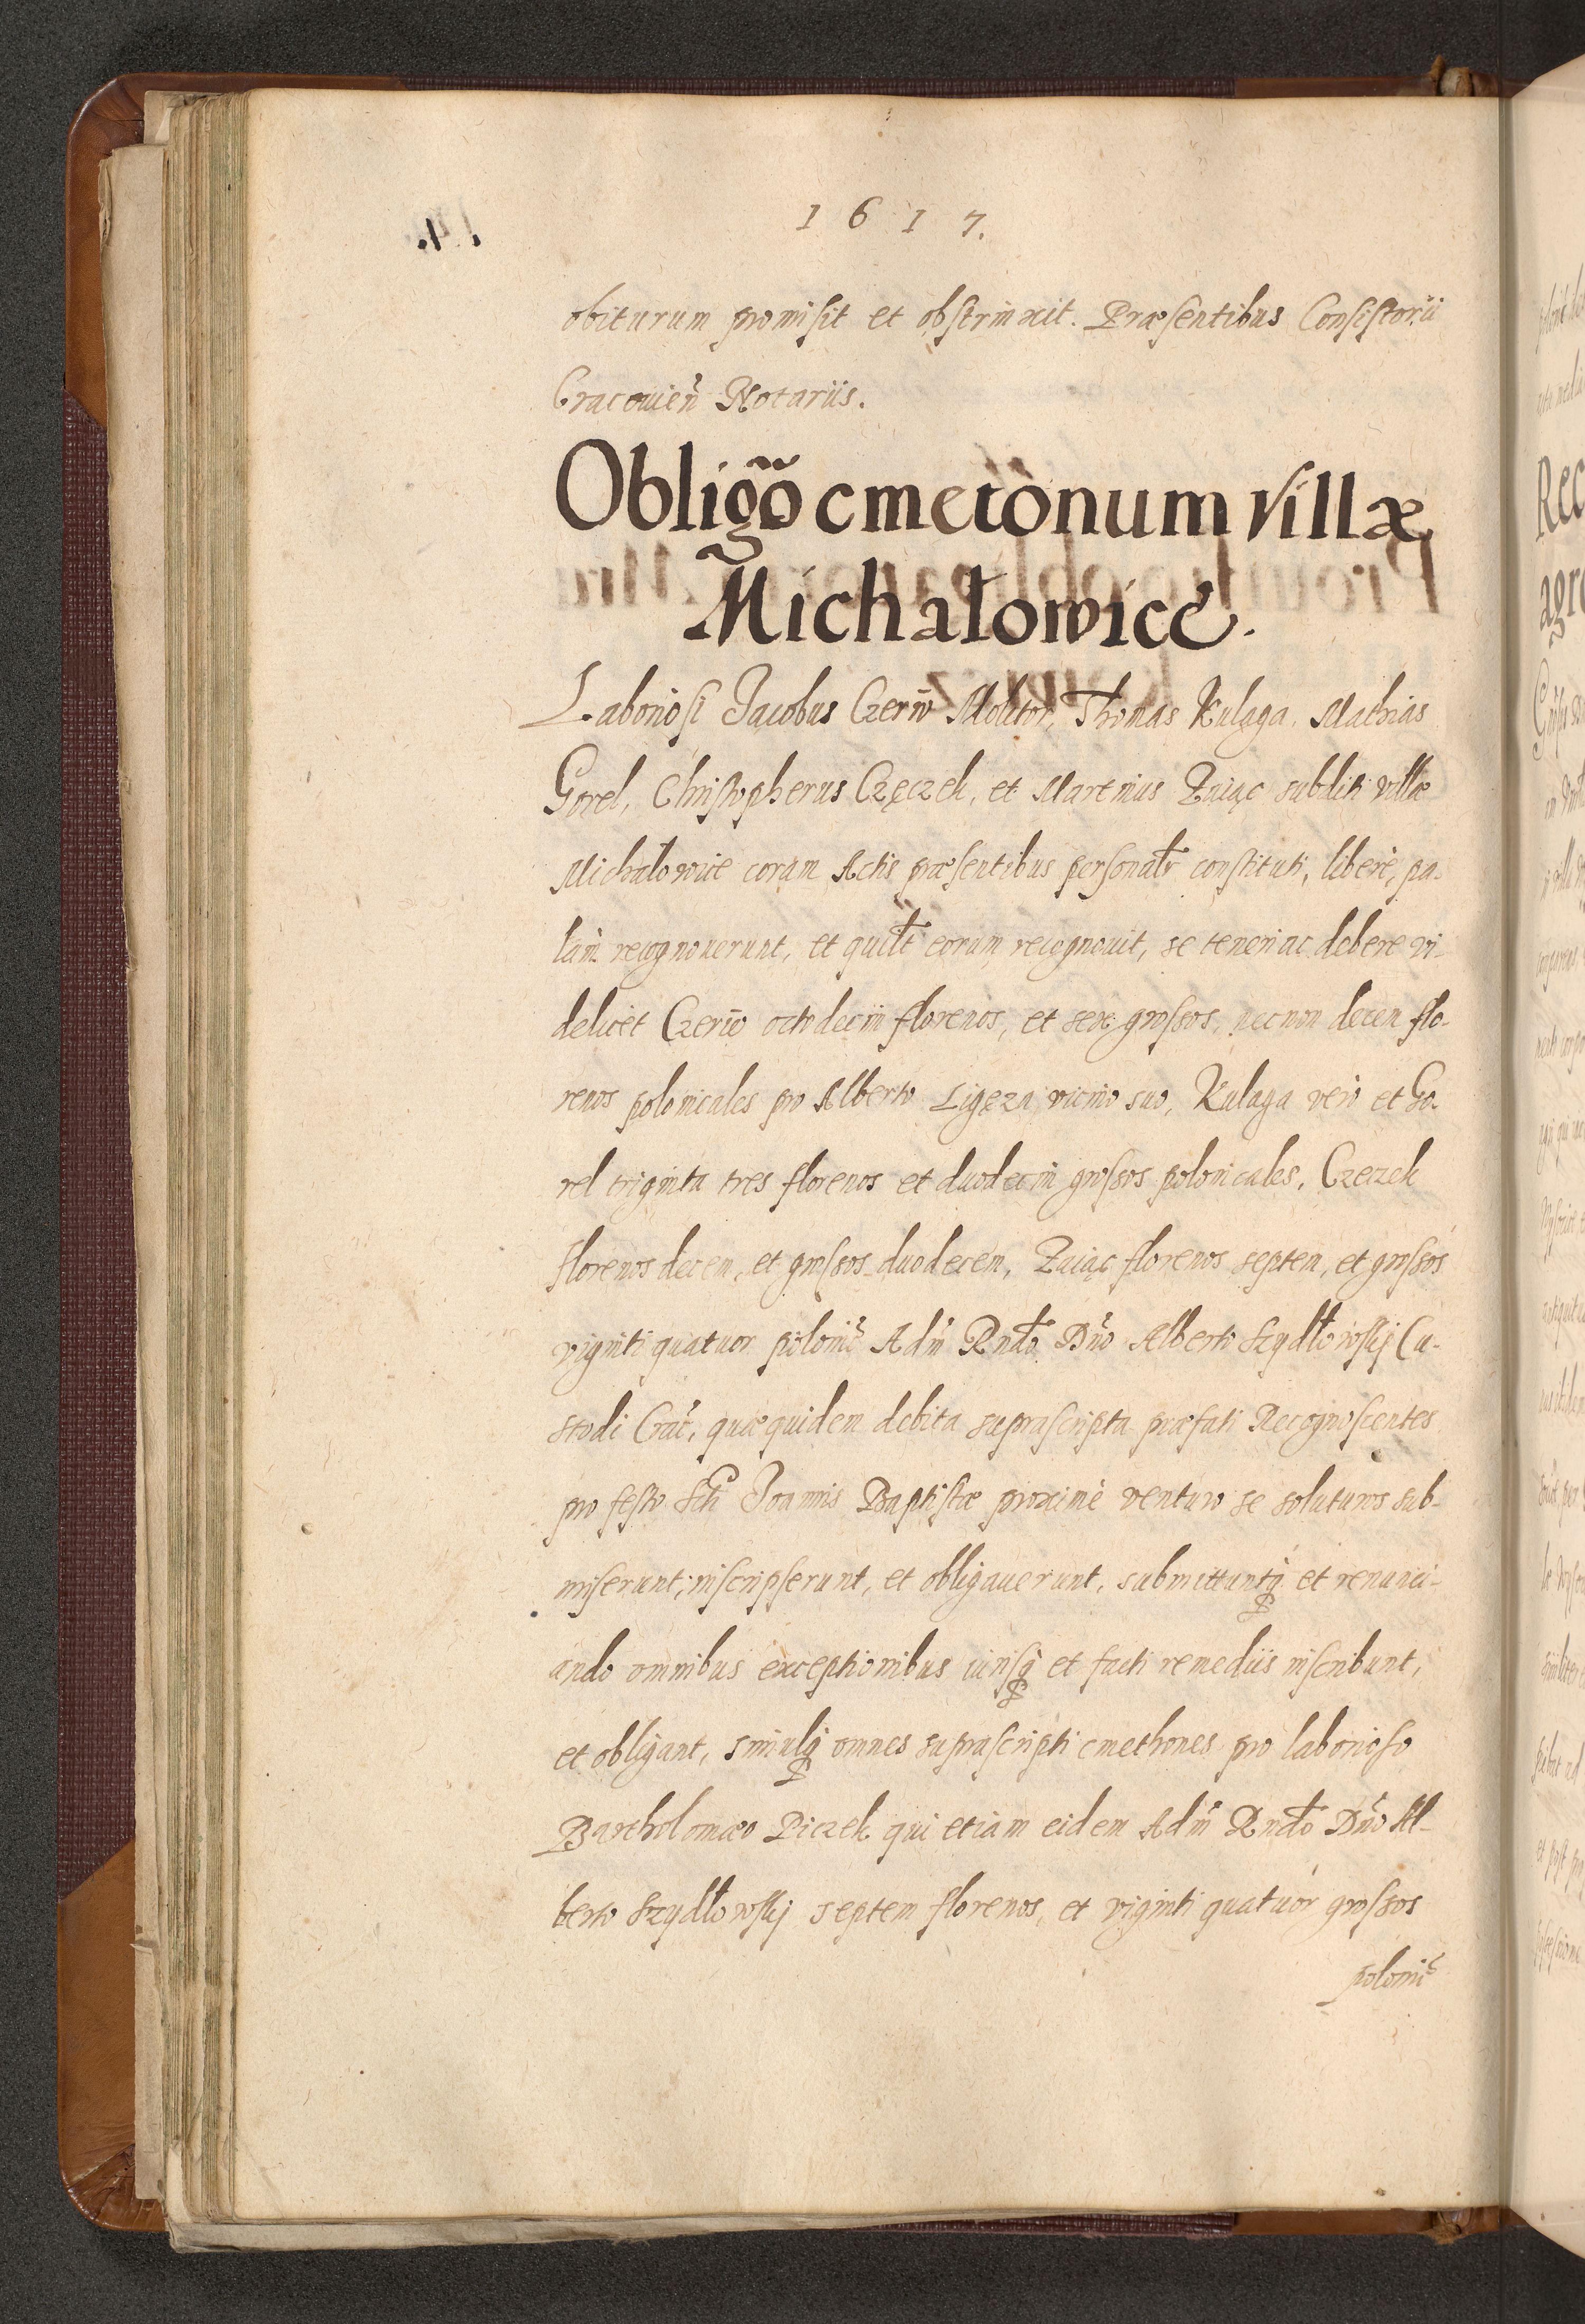 1 6 1 7.
obiturum promisit et obstrinxit. Præsentibus Consistorii
Cracouieñ Notariis.
Obligõo cmetonum villæ
Michałowice.
Laboriosi Jacobus Czerw Molitor, Thomas Kulaga, Mathias
Gorel, Christopherus Czeczek, et Martinus Zaiąc subditi villæ
Michałowice coram Actis præsentibus personałr constituti, libere, pa-
lam recognouerunt, et quilt eorum recognouit, se teneri ac debere vi-
delicet Czerw octodecim florenos, et sex grossos, necnon decem flo-
renos polonicales pro Alberto Ligęza vicino suo, Kulaga vero et Go-
rel triginta tres florenos et duodecim grossos polonicales, Czeczek
florenos decem, et grossos duodecem, Zaiąc florenos septem, et grossos
viginti quatuor polonic Adm Rndo Dno Alberto Szydłowskj Cu-
stodi Crac, quæquidem debita suprascripta præfati Recognoscentes
pro festo Scti Joannis Baptistæ proxime venturo se soluturos sub-
miserunt, inscripserunt, et obligauerunt, submittuntq et renunci-
ando omnibus exceptionibus iurisq et facti remediis inscribunt,
et obligant, simulq omnes suprascripti cmethones pro laborioso
Bartholomæo Piczek qui etiam eidem Adm Rndo Dno Al-
berto Szydłowskj septem florenos, et viginti quatuor grossos
polonic